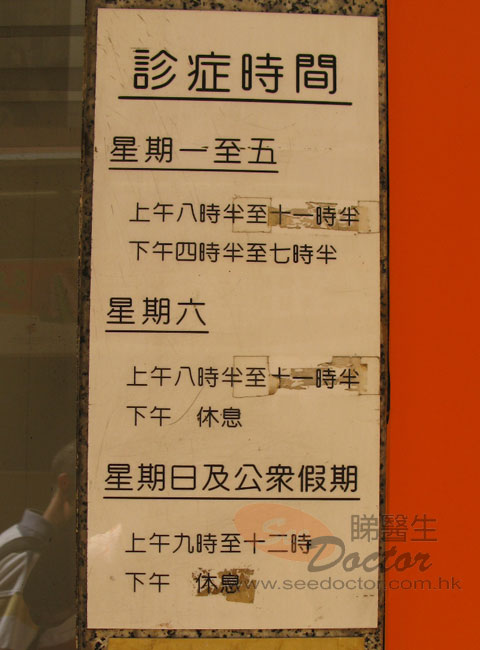 診症時間
星期一至五
上午八時半至十一時半
下午四時半至七時半
星期六
上午八時半至十一時半
下午 休息
星期日及公衆假期
上午九時至十二時
下午 休息
See Doctor 睇醫生
www.seedoctor.com.hk